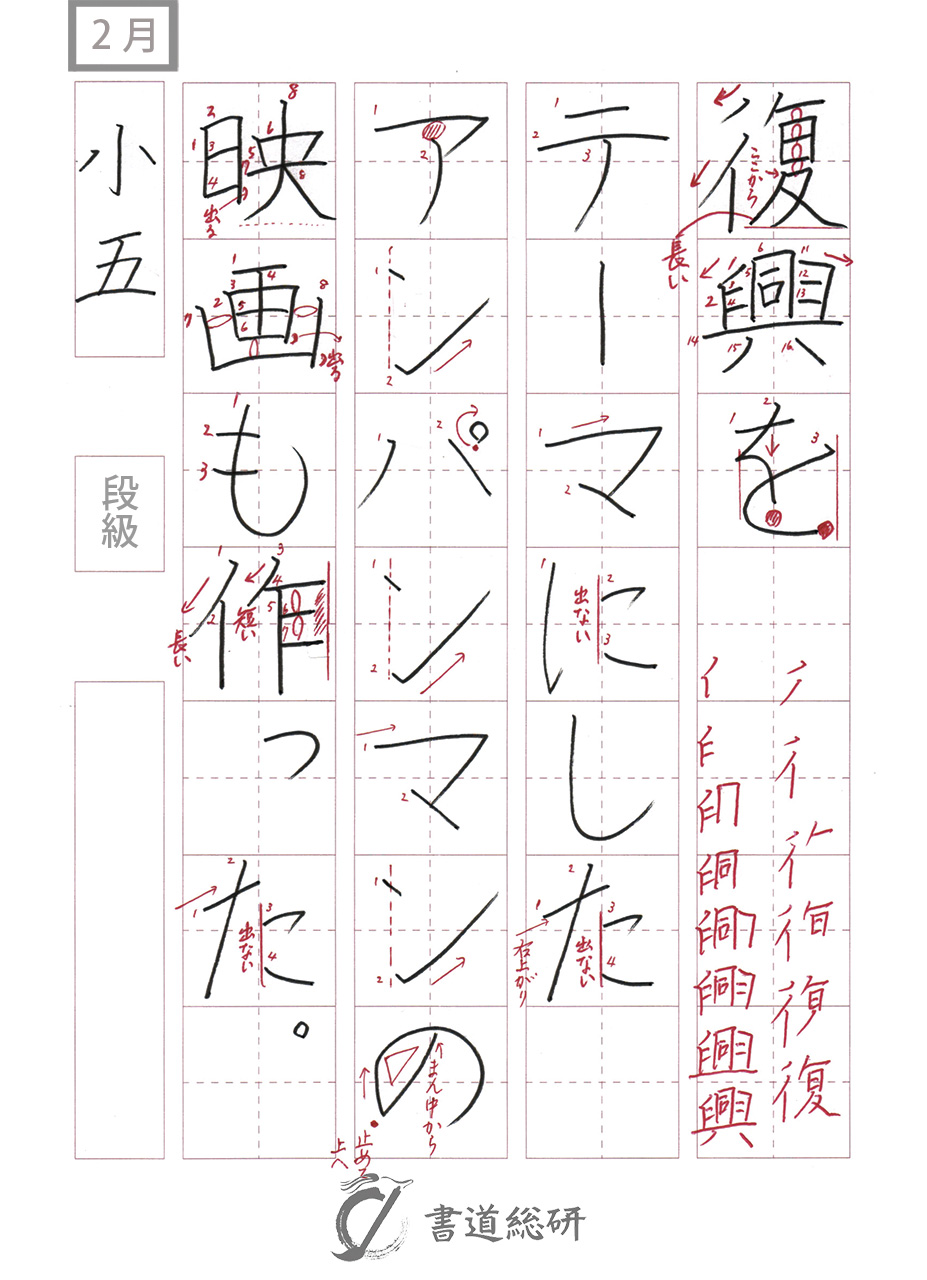 2月
復興を
テーマにした
アンパンマンの
映画も作った。
小五
段級
ここから
長い
出ない
出ない
右上がり
まん中から
止めて
上へ
出る
出る
長い
短い
出ない
書道総研